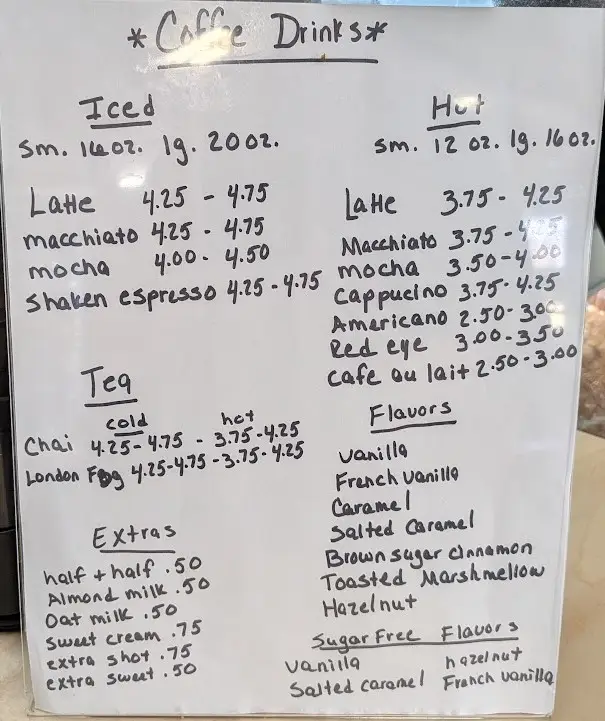 *Coffee Drinks*
Iced
Sm. 16oz. lg. 20oz.
Latte 4.25 - 4.75
macchiato 4.25 - 4.75
mocha 4.00 - 4.50
Shaken espresso 4.25 - 4.75
Hot
Sm. 12 oz. lg. 16oz.
Latte 3.75 - 4.25
Macchiato 3.75 -
mocha 3.50 - 4.00
Cappucino 3.75 - 4.25
Americano 2.50 - 3.00
Red eye 3.00 - 3.50
cafe au lait 2.50 - 3.00
Tea
cold hot
Chai 4.25 - 4.75 - 3.75 - 4.25
London Fog 4.25 - 4.75 - 3.75 - 4.25
Extras
half + half .50
Almond milk .50
Oat milk .50
Sweet cream .75
extra shot .75
extra sweet .50
Flavors
Vanilla
French Vanilla
Caramel
Salted Caramel
Brown sugar cinnamon
Toasted Marshmellow
Hazelnut
Sugar Free Flavors
Vanilla hazelnut
Salted caramel French Vanilla